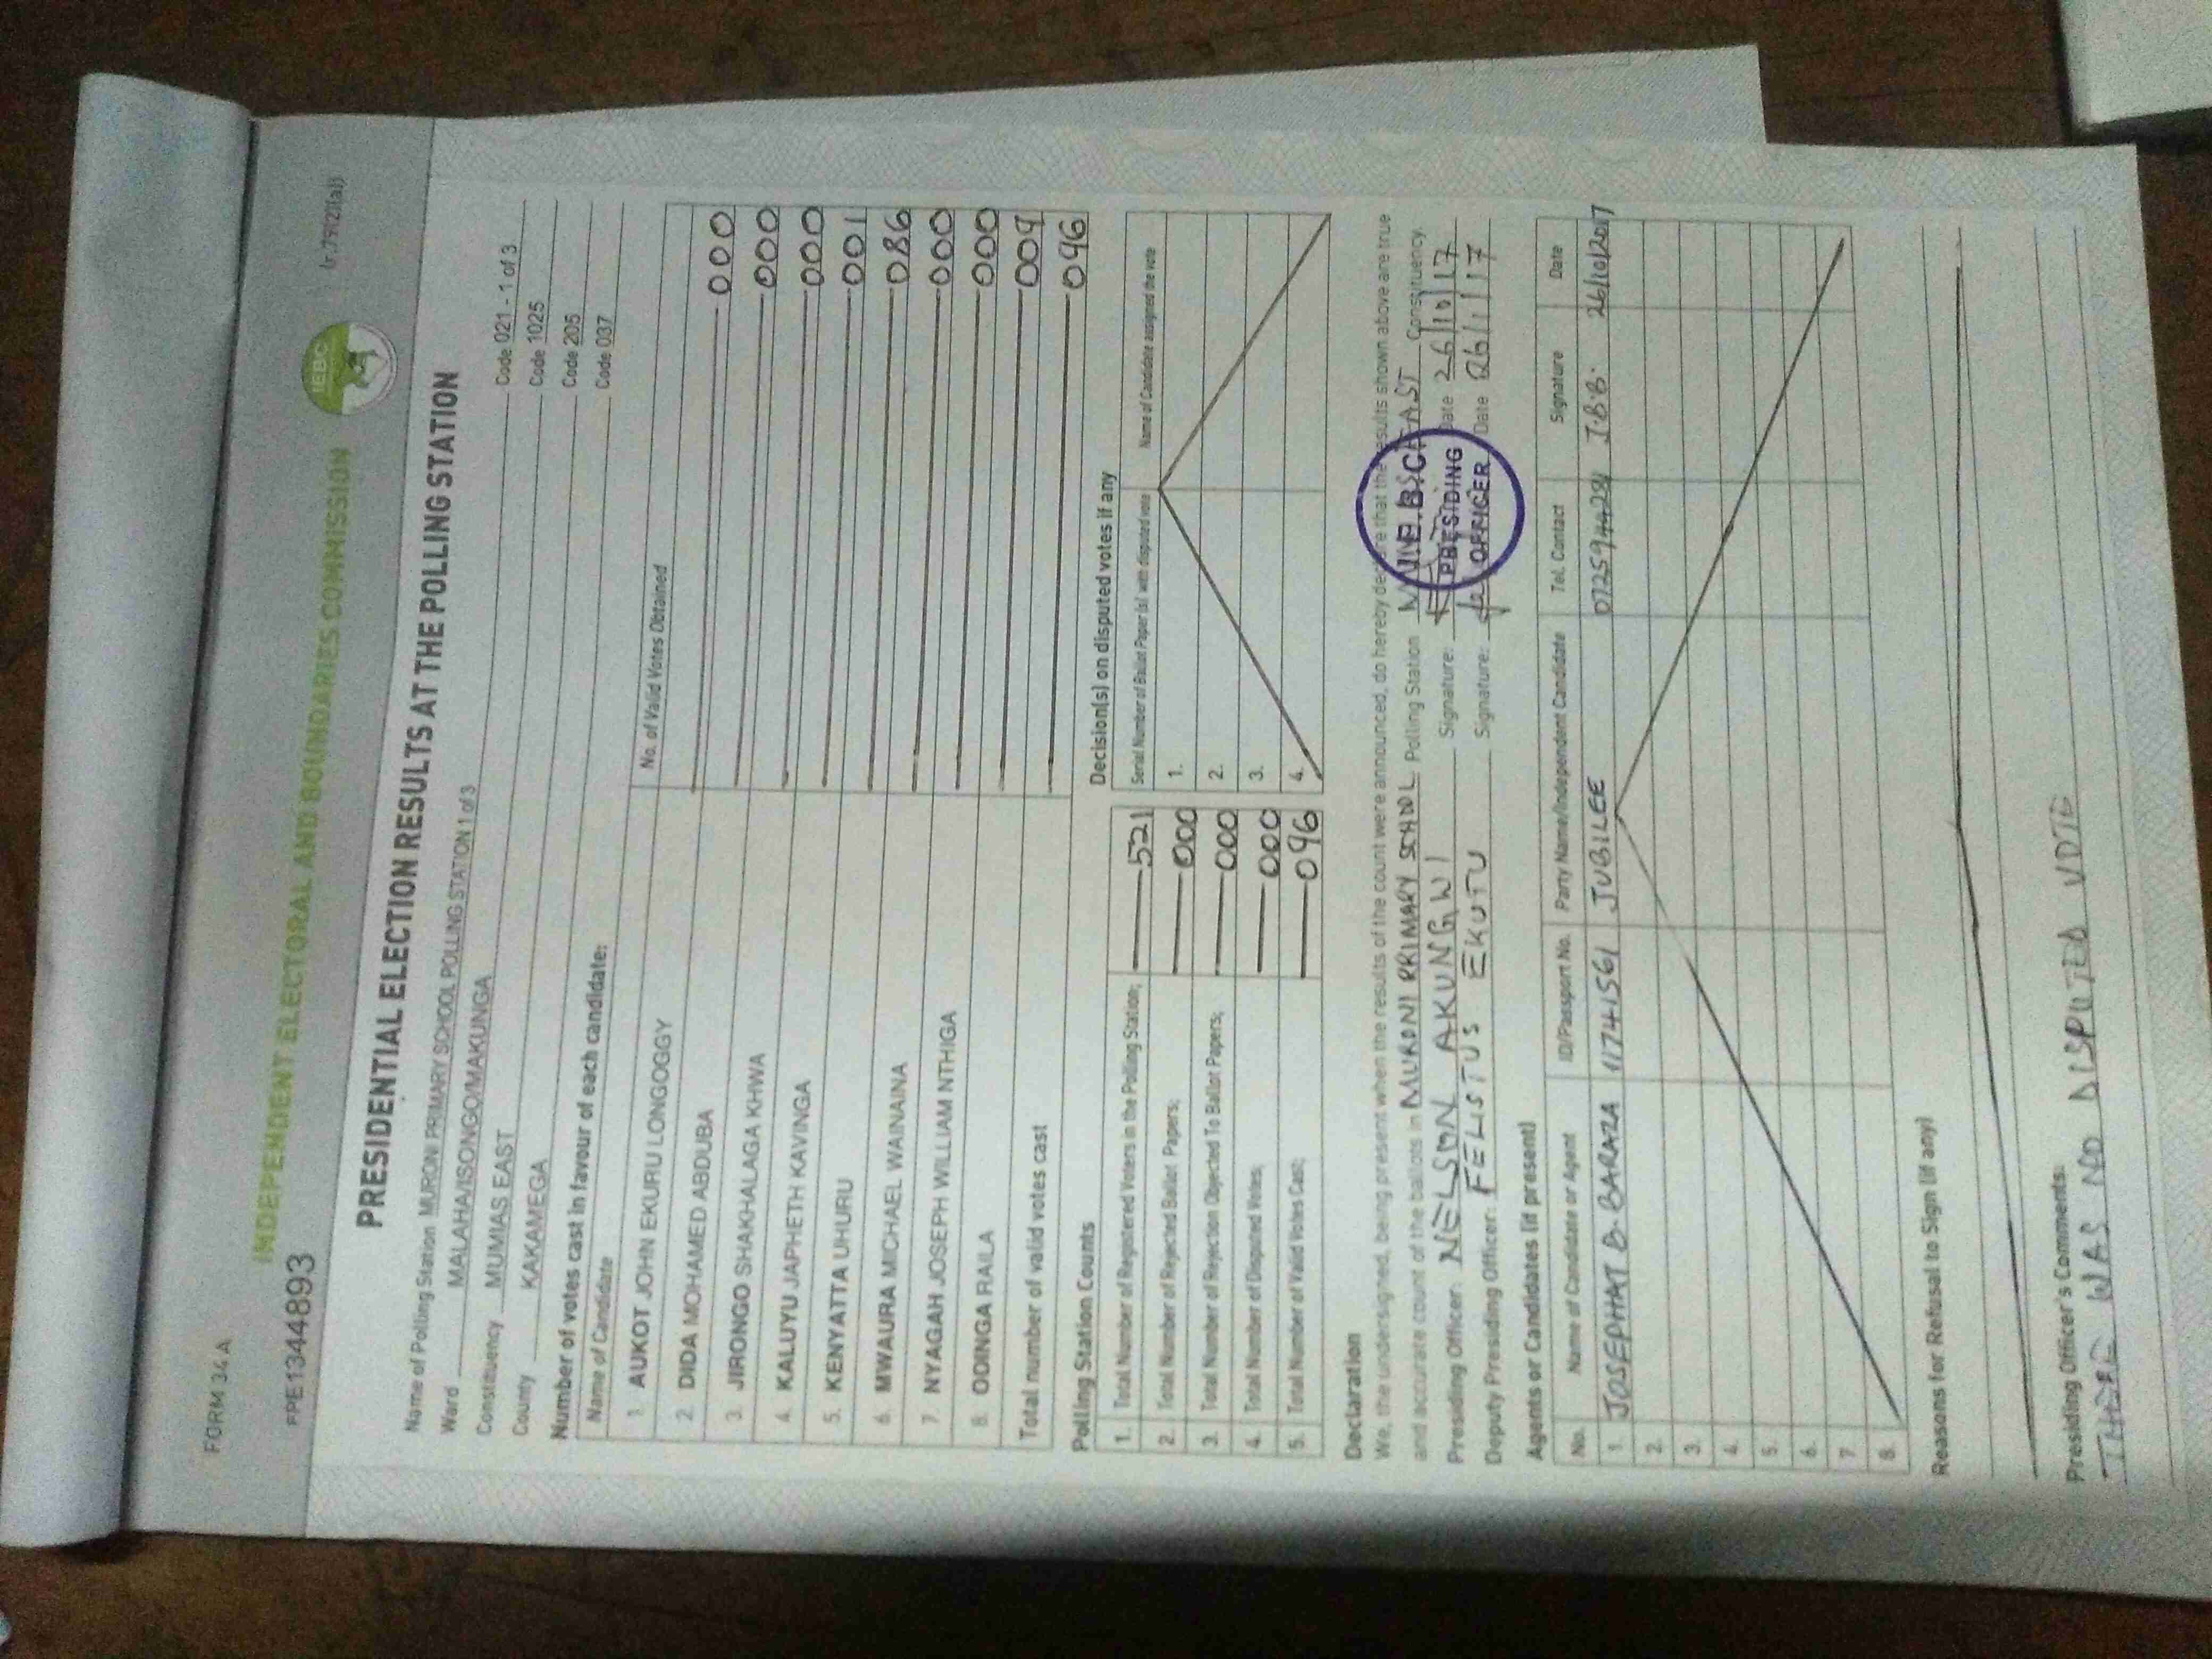 FORM 34A
(r.79(2)(a))
FPE1344893
INDEPENDENT ELECTORAL AND BOUNDARIES COMMISSION
IEBC
PRESIDENTIAL ELECTION RESULTS AT THE POLLING STATION
Name of Polling Station MURONI PRIMARY SCHOOL POLLING STATION 1 of 3 Code 021 - 1 of 3
Ward MALAHA/ISONGO/MAKUNGA Code 1025
Constituency MUMIAS EAST Code 205
County KAKAMEGA Code 037
Number of votes cast in favour of each candidate:
Name of Candidate No. of Valid Votes Obtained
1. AUKOT JOHN EKURU LONGOGGY 000
2. DIDA MOHAMED ABDUBA 000
3. JIRONGO SHAKHALAGA KHWA 000
4. KALUYU JAPHETH KAVINGA 001
5. KENYATTA UHURU 086
6. MWAURA MICHAEL WAINAINA 000
7. NYAGAH JOSEPH WILLIAM NTHIGA 000
8. ODINGA RAILA 009
Total number of valid votes cast 096
Polling Station Counts
1. Total Number of Registered Voters in the Polling Station; 521
2. Total Number of Rejected Ballot Papers; 000
3. Total Number of Rejection Objected To Ballot Papers; 000
4. Total Number of Disputed Votes; 000
5. Total Number of Valid Votes Cast; 096
Decision(s) on disputed votes if any
Serial Number of Ballot Paper (s) with disputed vote Name of Candidate assigned the vote
1.
2.
3.
4.
Declaration
We, the undersigned, being present when the results of the count were announced, do hereby declare that the results shown above are true
and accurate count of the ballots in MURONI PRIMARY SCHOOL Polling Station EAST Constituency.
Presiding Officer: NELSON AKUNGWI Signature: Date 26/10/17
Deputy Presiding Officer: FELISTUS EKUTU Signature: Date 26/1/17
PRESIDING
OFFICER
Agents or Candidates (if present)
No. Name of Candidate or Agent ID/Passport No. Party Name/Independent Candidate Tel. Contact Signature Date
1. JOSEPHAT B. BARAZA 11741561 JUBILEE J.B.B. 26/10/2017
2.
3.
4.
5.
6.
7.
8.
Reasons for Refusal to Sign (if any)
Presiding Officer's Comments:
THERE WAS NO DISPUTED VOTE